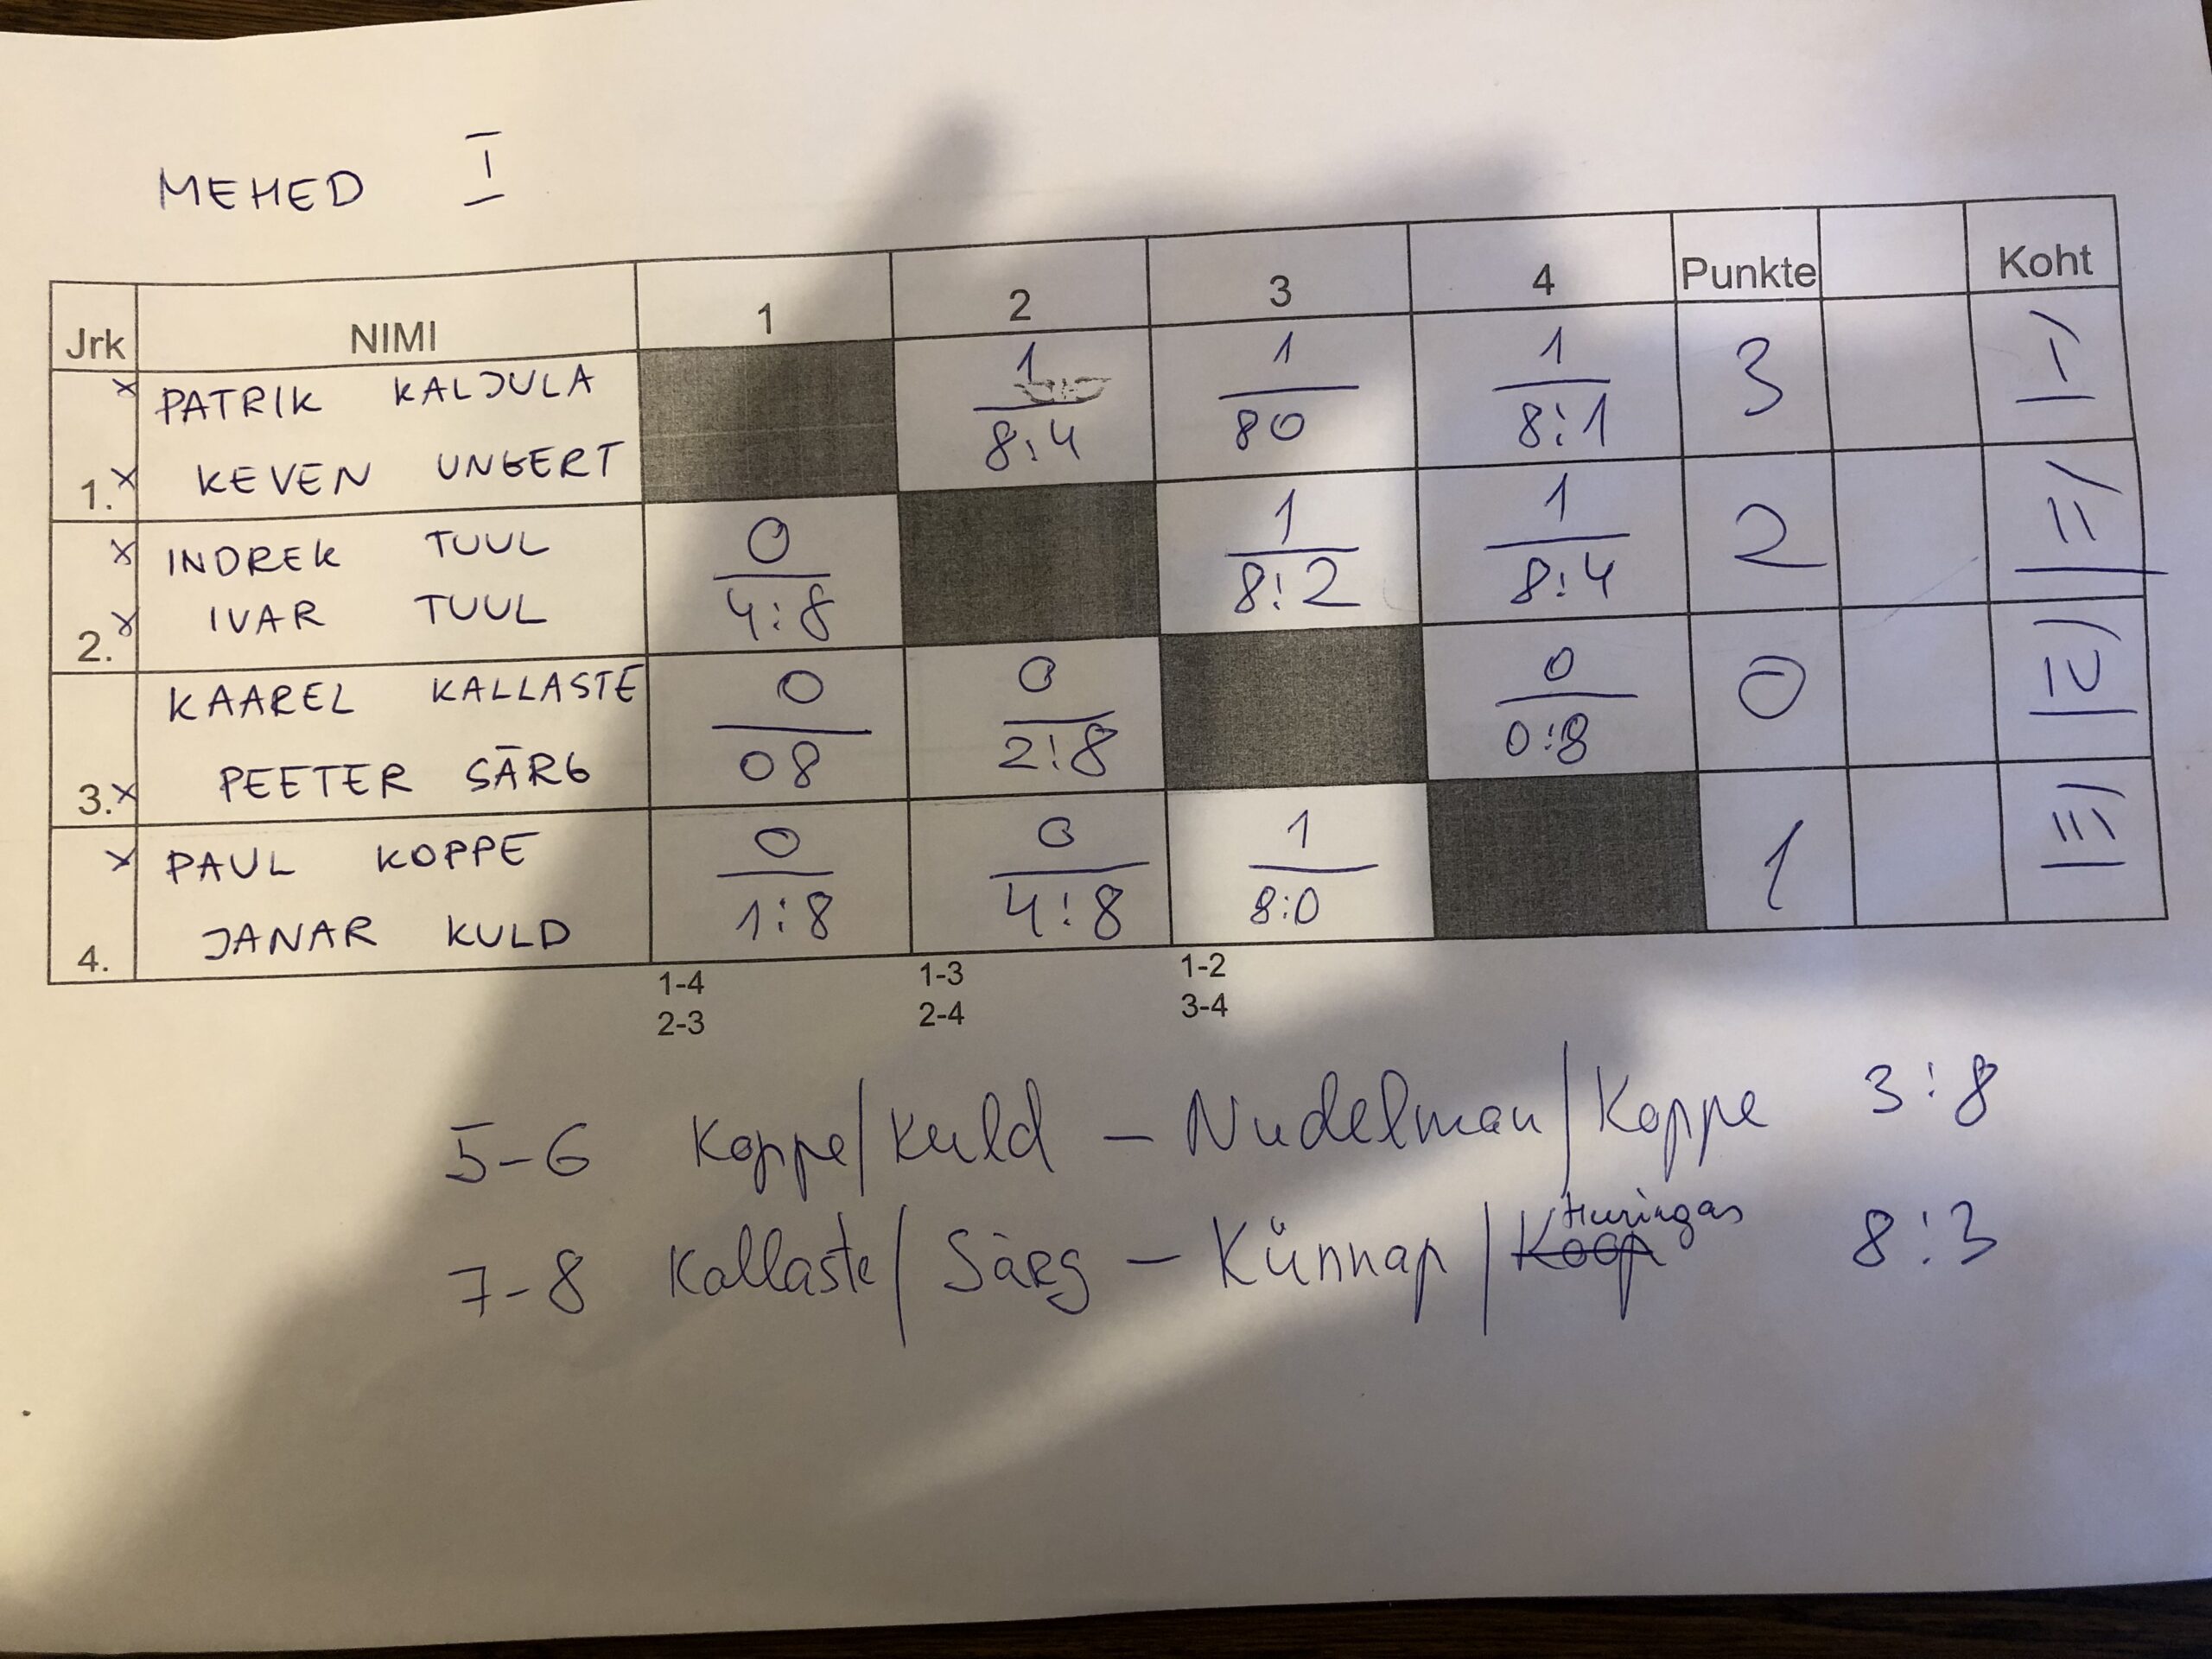 MEHED I
Jrk NIMI 1 2 3 4 Punkte Koht
x PATRIK KALJULA 1 1 1 3 I
1. x KEVEN UNGERT 8:4 80 8:1
x INDREK TUUL 0 1 1 2 II
2. x IVAR TUUL 4:8 8:2 8:4
KAAREL KALLASTE 0 0 0 0 IV
3. x PEETER SÄRG 08 2:8 0:8
x PAUL KOPPE 0 0 1 1 III
4. JANAR KULD 1:8 4:8 8:0
1-4 1-3 1-2
2-3 2-4 3-4
5-6 Koppe/Kuld - Nudelman/Koppe 3:8
7-8 Kallaste/Särg - Künnap/Huringas 8:3